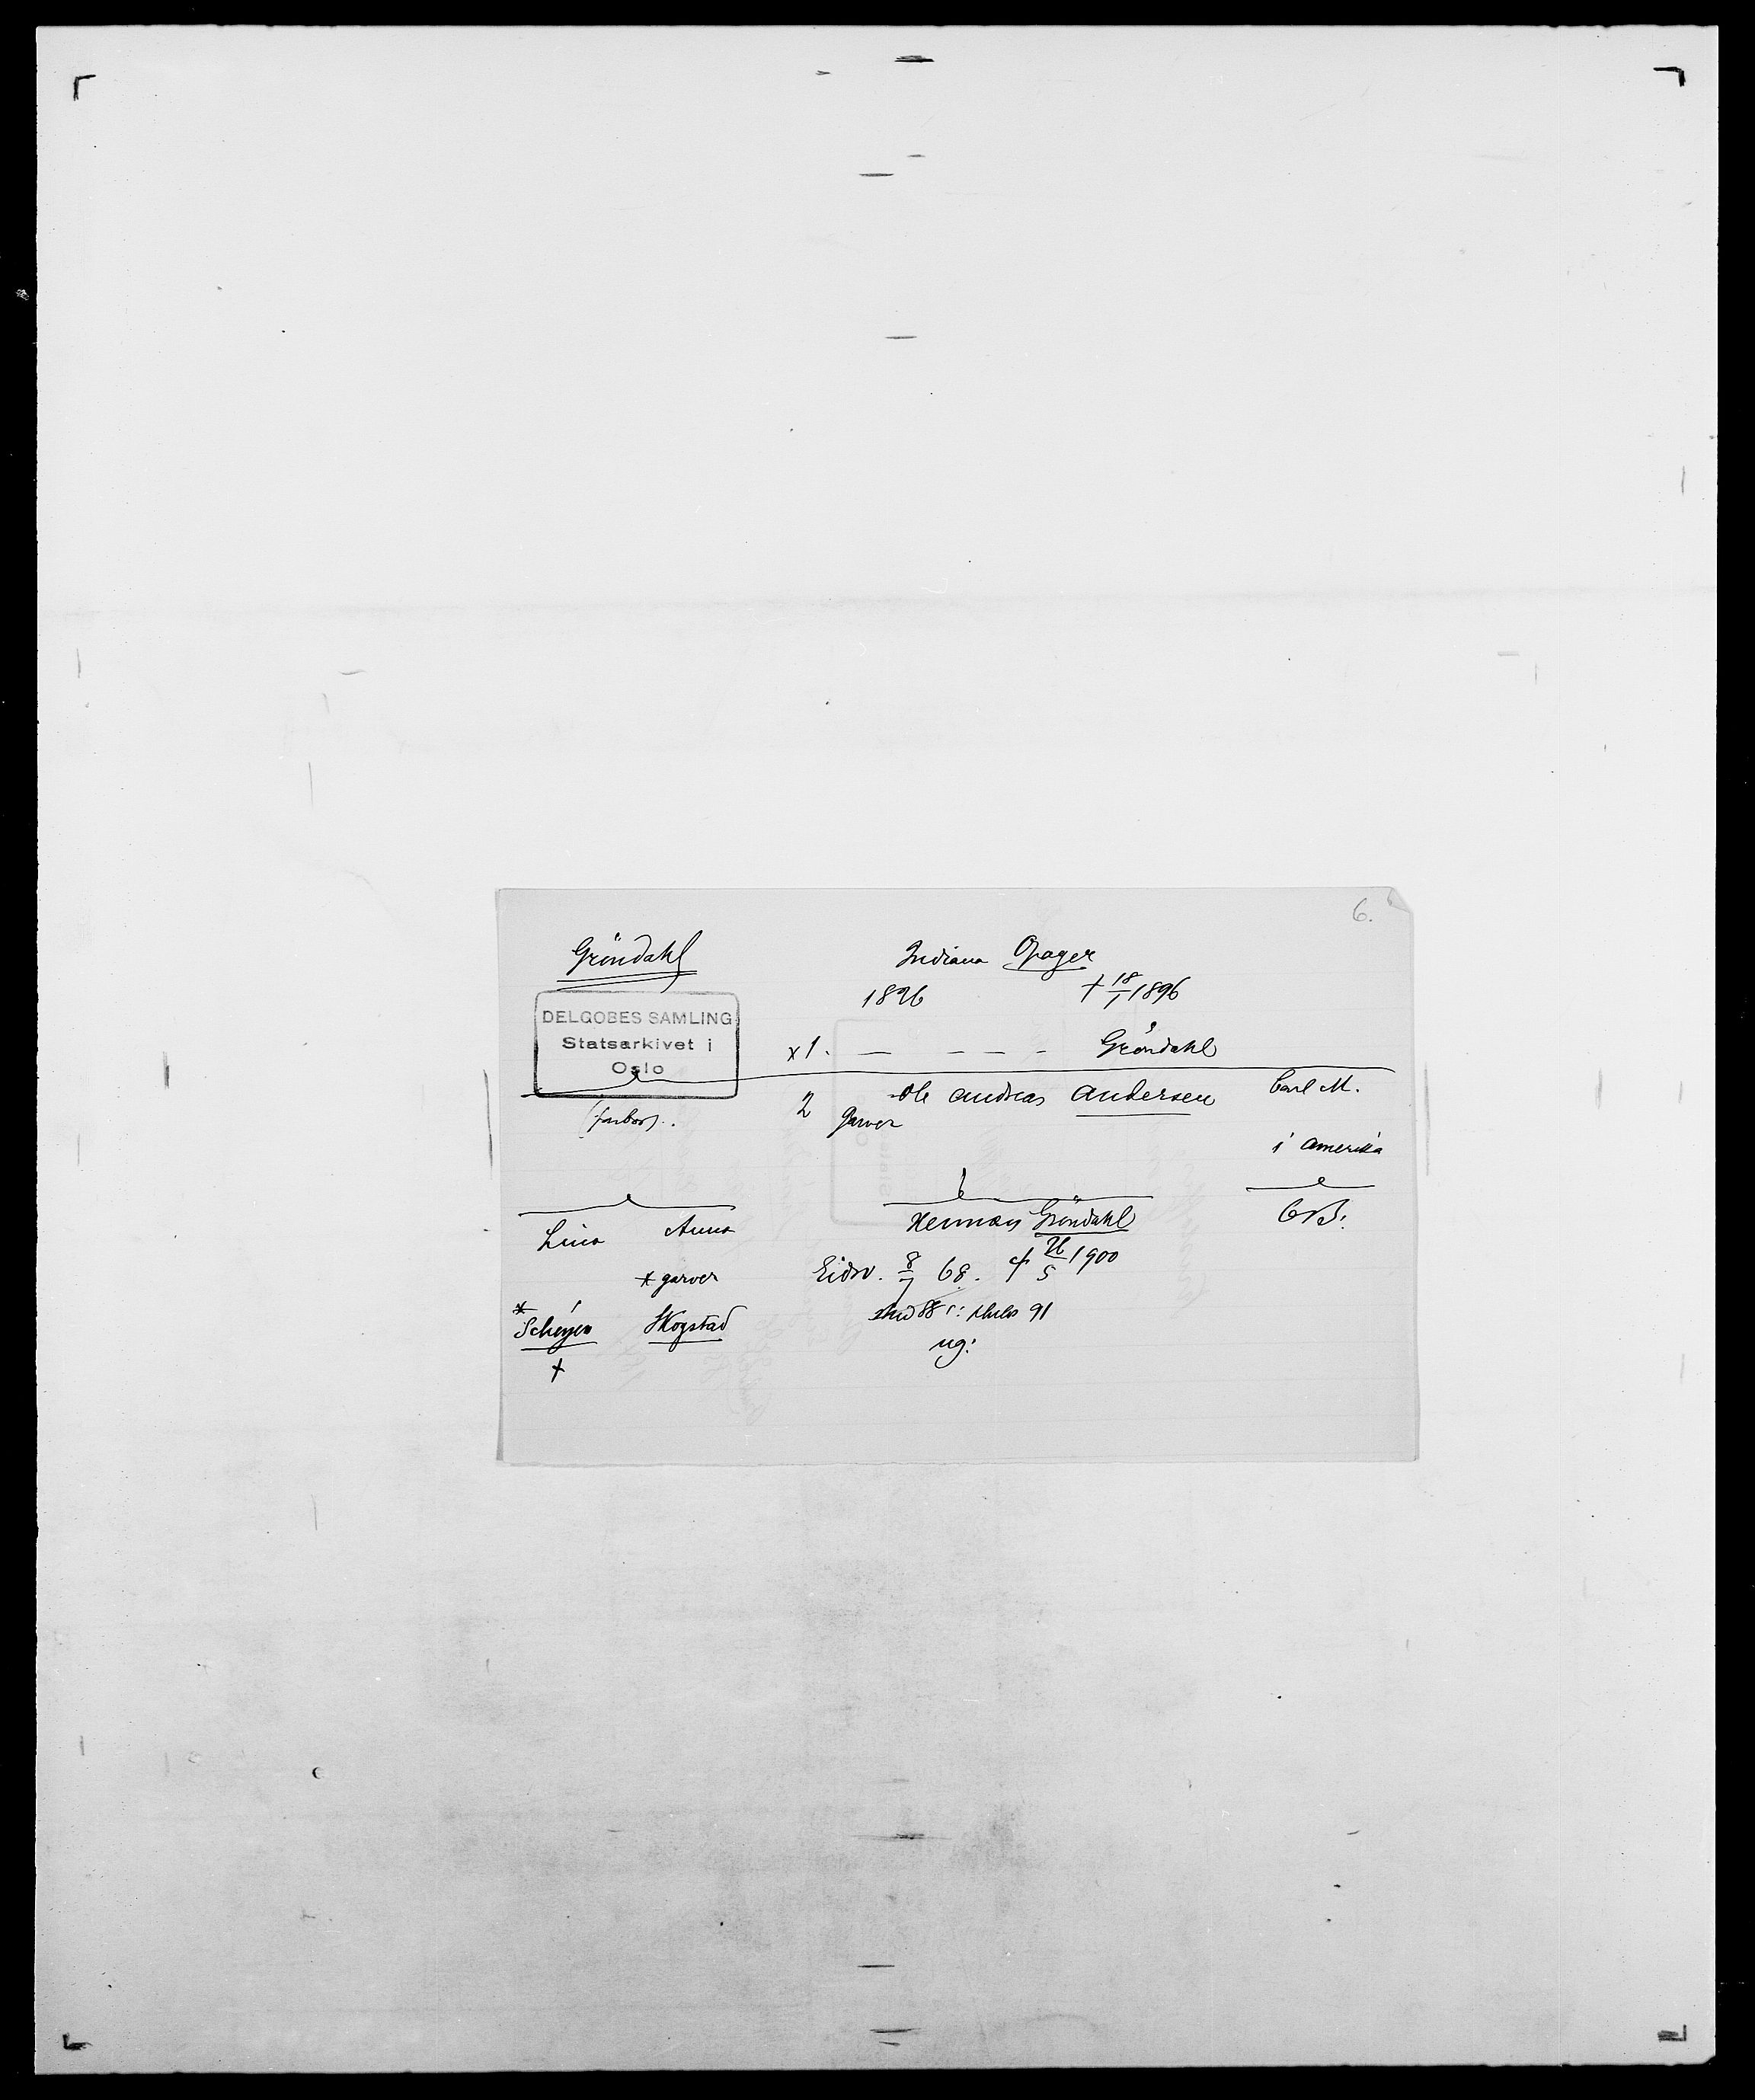 6.
Gröndahl
Indiana Opager
1826 † 18/1 1896
DELGOBES SAMLING
Statsarkivet i
Oslo
x 1. — — — — Gröndahl
2 Ole Andreas Andersen
Garver
Carl M.
i Amerika
Lina Anna
Herman Gröndahl
* garver
Eidsv. 8/7 68. † 26/5 1900
* Schøyen Skogstad
stud 88 91
†
ug: